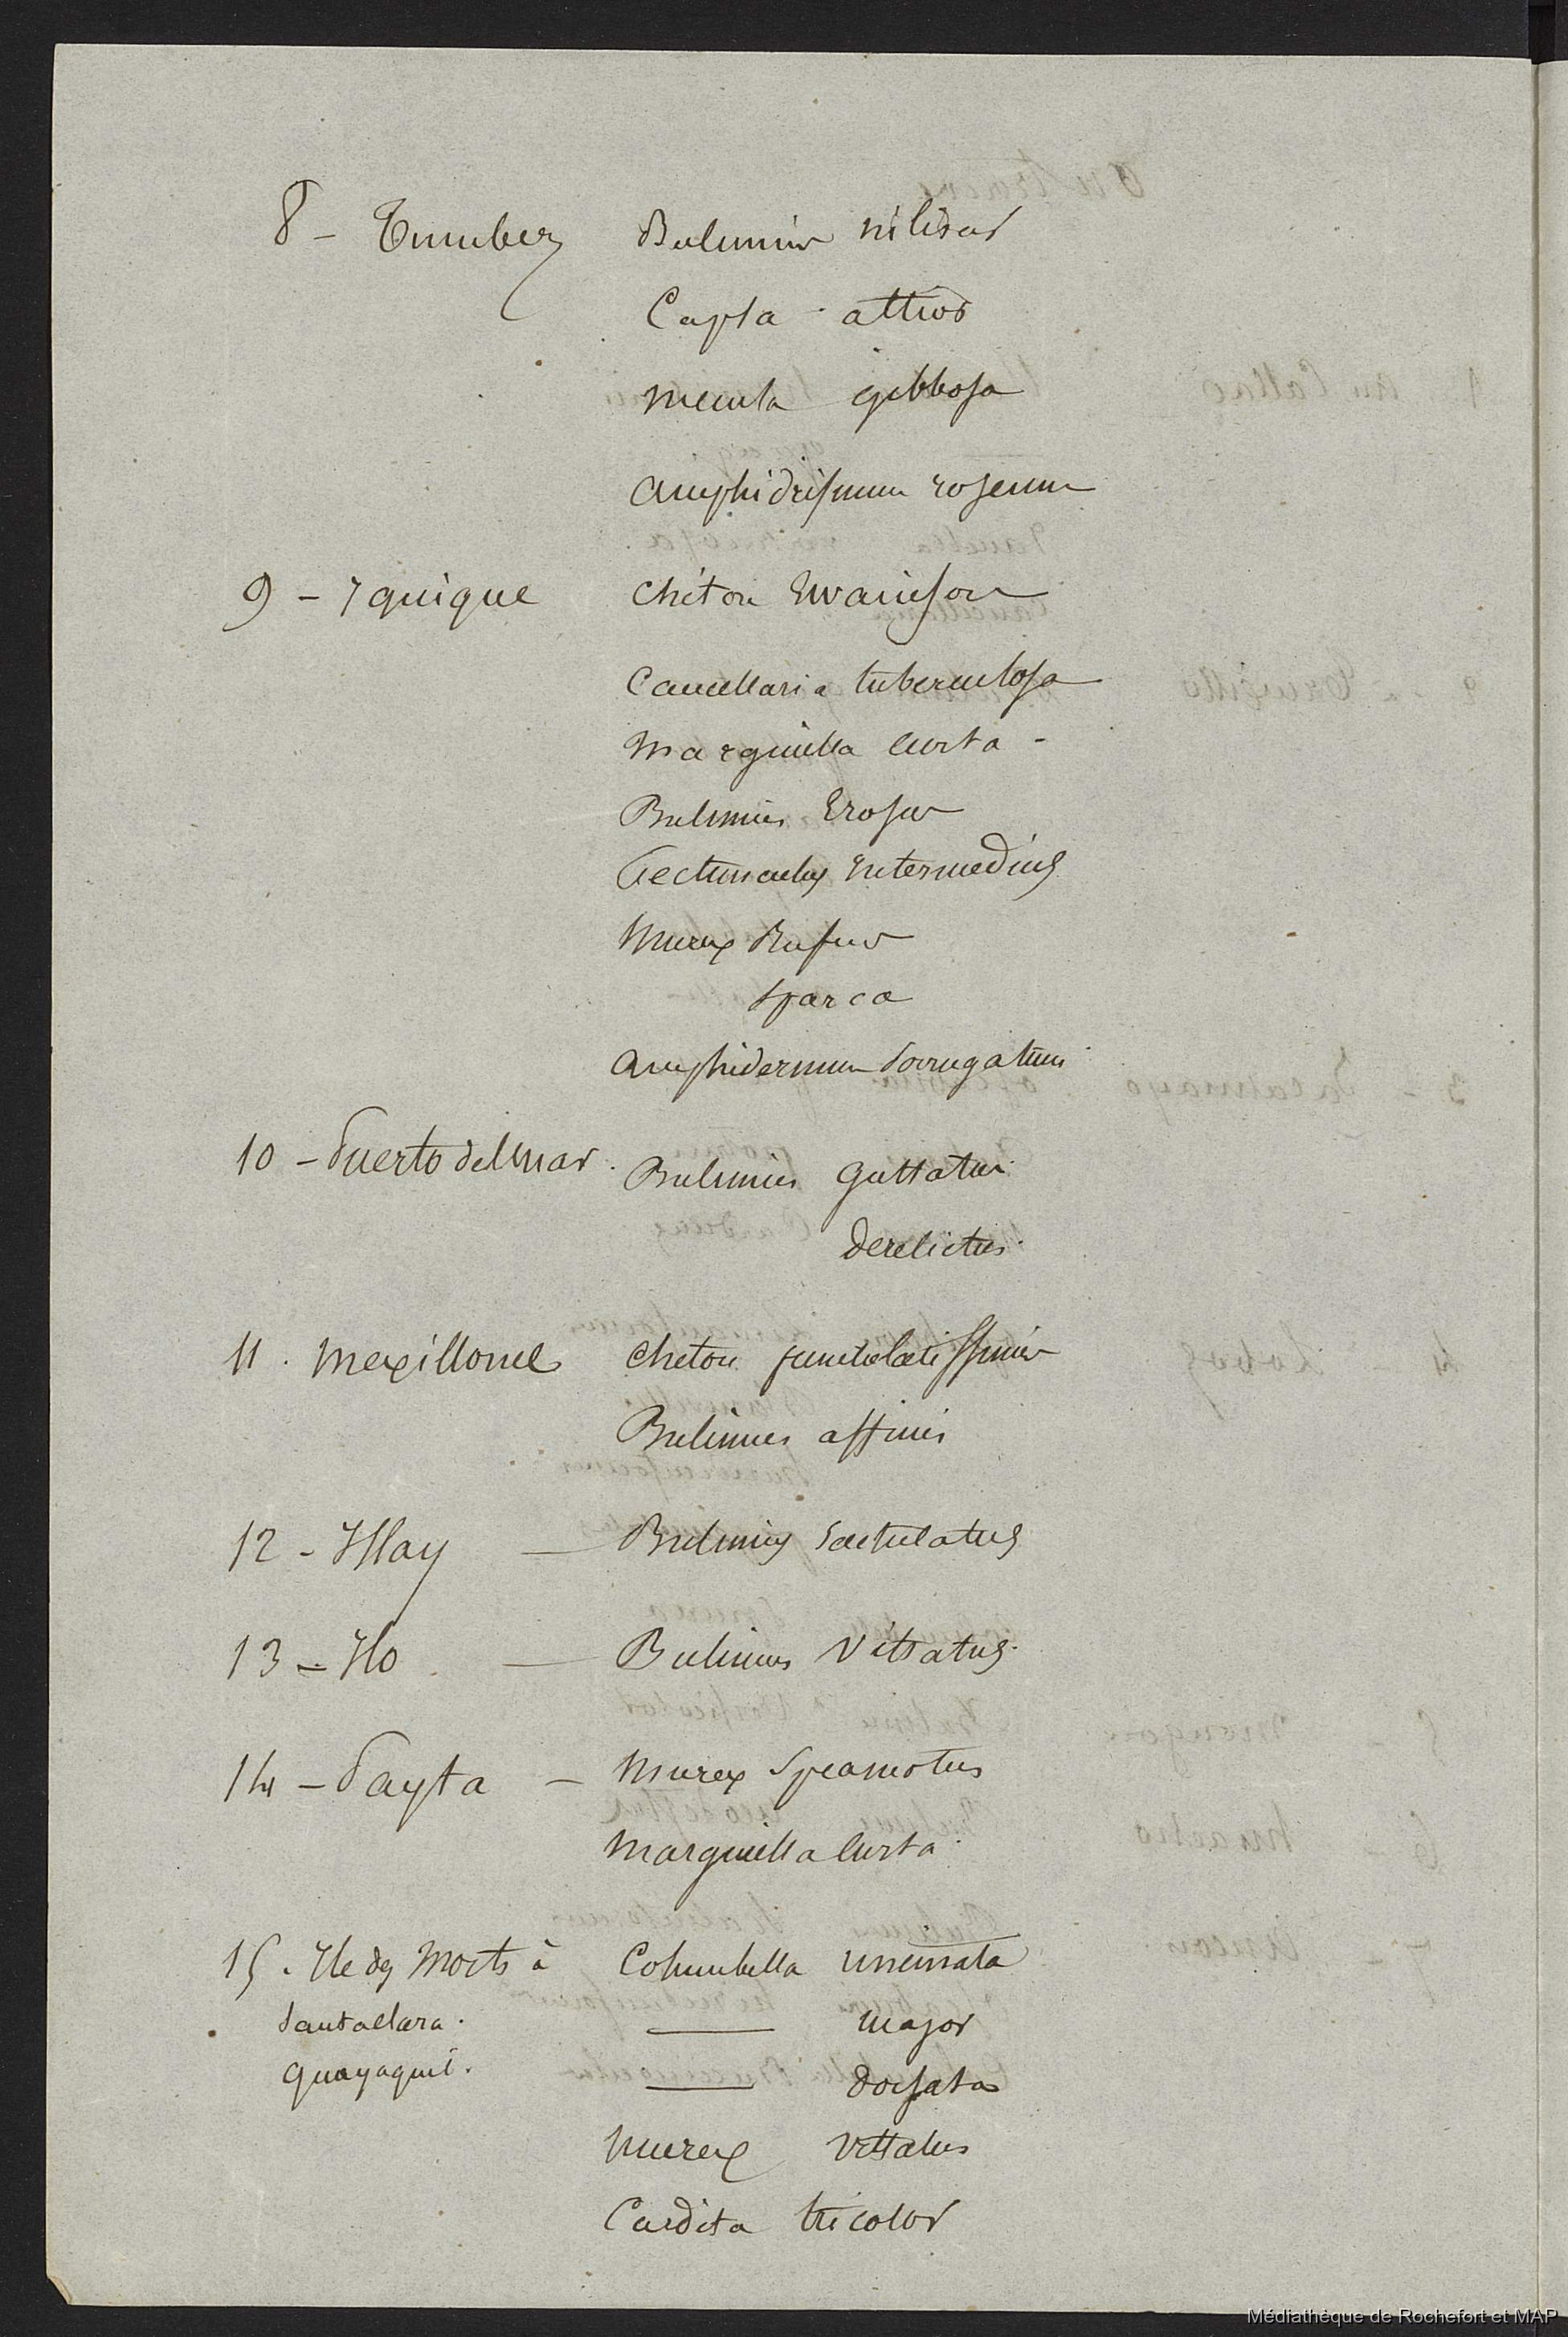 8 - Tumbez Bulimus nilidus
Capsa altior
Mencla gibbosa
Amphidesmum roseum
9 - Iquique Chiton Swainson
Cancellaria tuberculosa
Marginella Curta -
Bulimus Erosus
Pectunculus Intermedius
Murex Rufus
Sparca
Amphidermum Corrugatum
10 - Puerto del mar. Bulimus guttatus
derelictus.
11. Mexillone Chiton punctulatissimus
Bulimus affinis
12 - Islay — Bulimus
13 - Ilo — Bulimus Vitratus.
14 - Payta — Murex
Marginella Curta.
15. Ile des Morts à Columbella uncinata
Santa Clara. — major
Guayaquil. — dorsata
Murex Vittatus
Cardita tricolor
Médiathèque de Rochefort et MAP